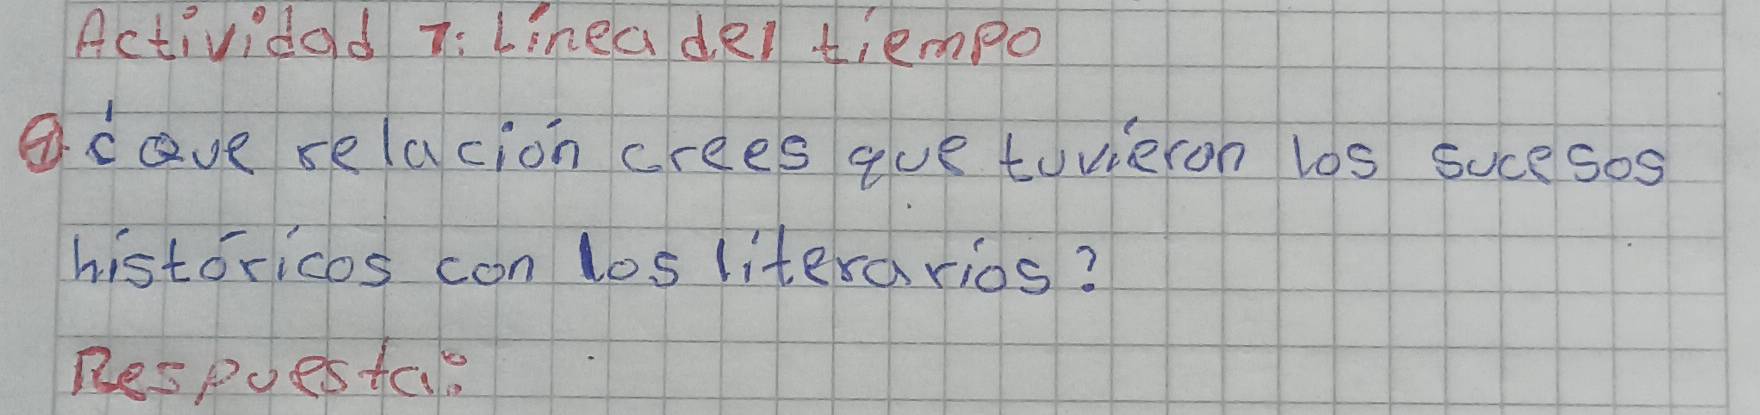 Actividad 7: Línea del tiempo
① ¿Que relación crees que tuvieron los sucesos
históricos con los literarios?
Respuesta: